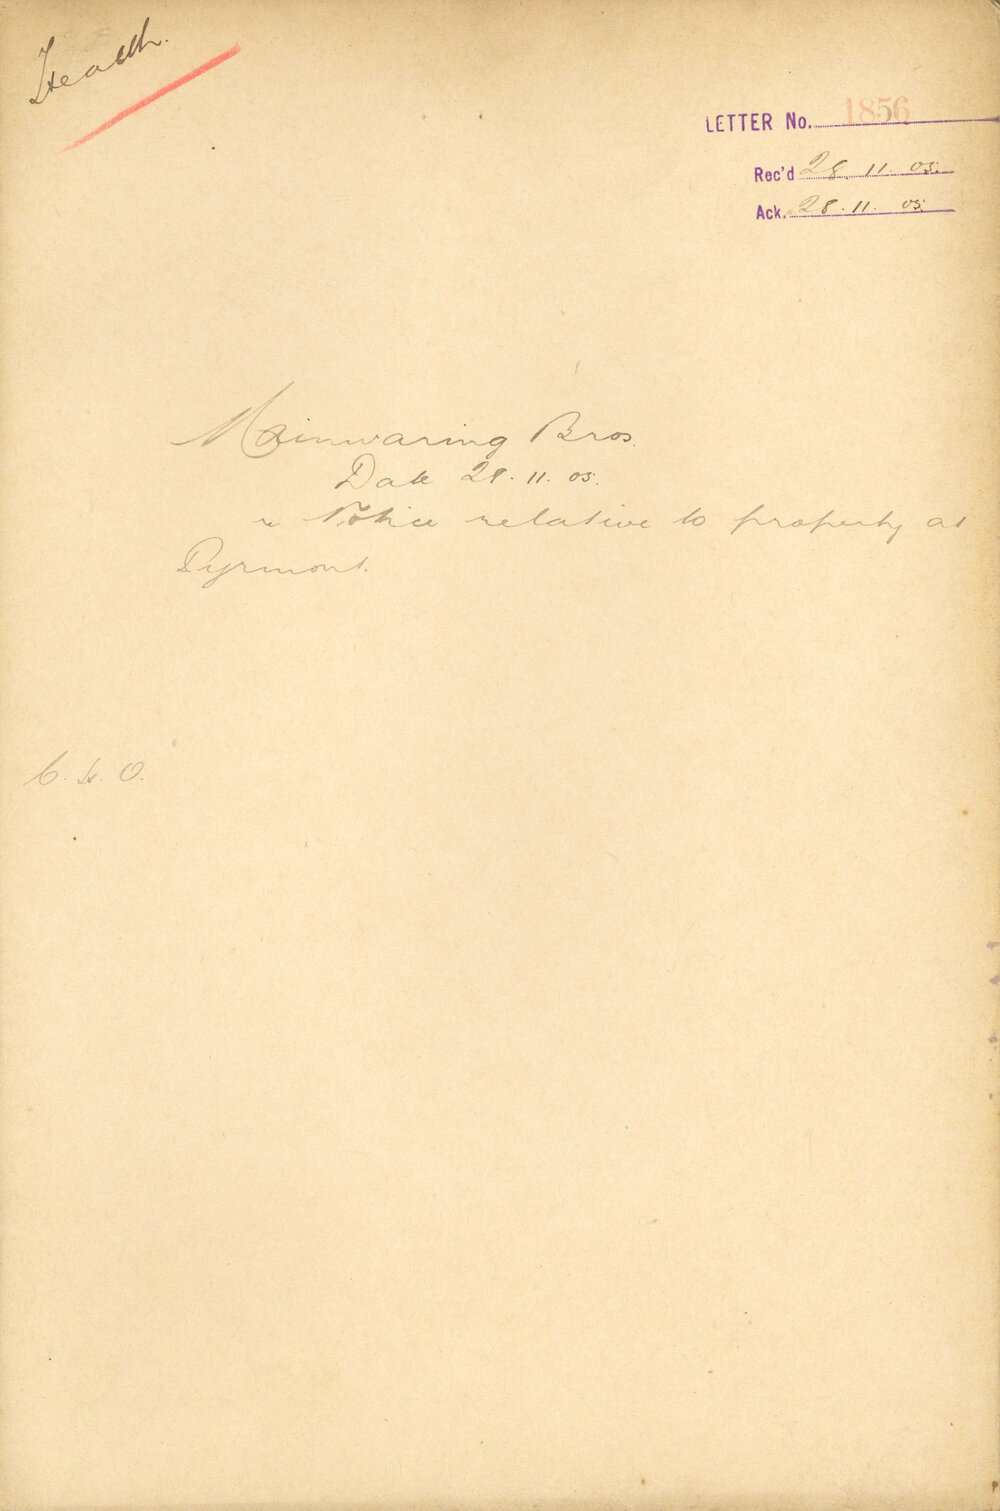 Health.
LETTER No. 1856
Rec'd 28. 11. 05.
Ack. 28. 11. 05.
Mainwaring Bros.
Date 28. 11. 05.
re Notice relative to property at
Pyrmont.
C. H. O.